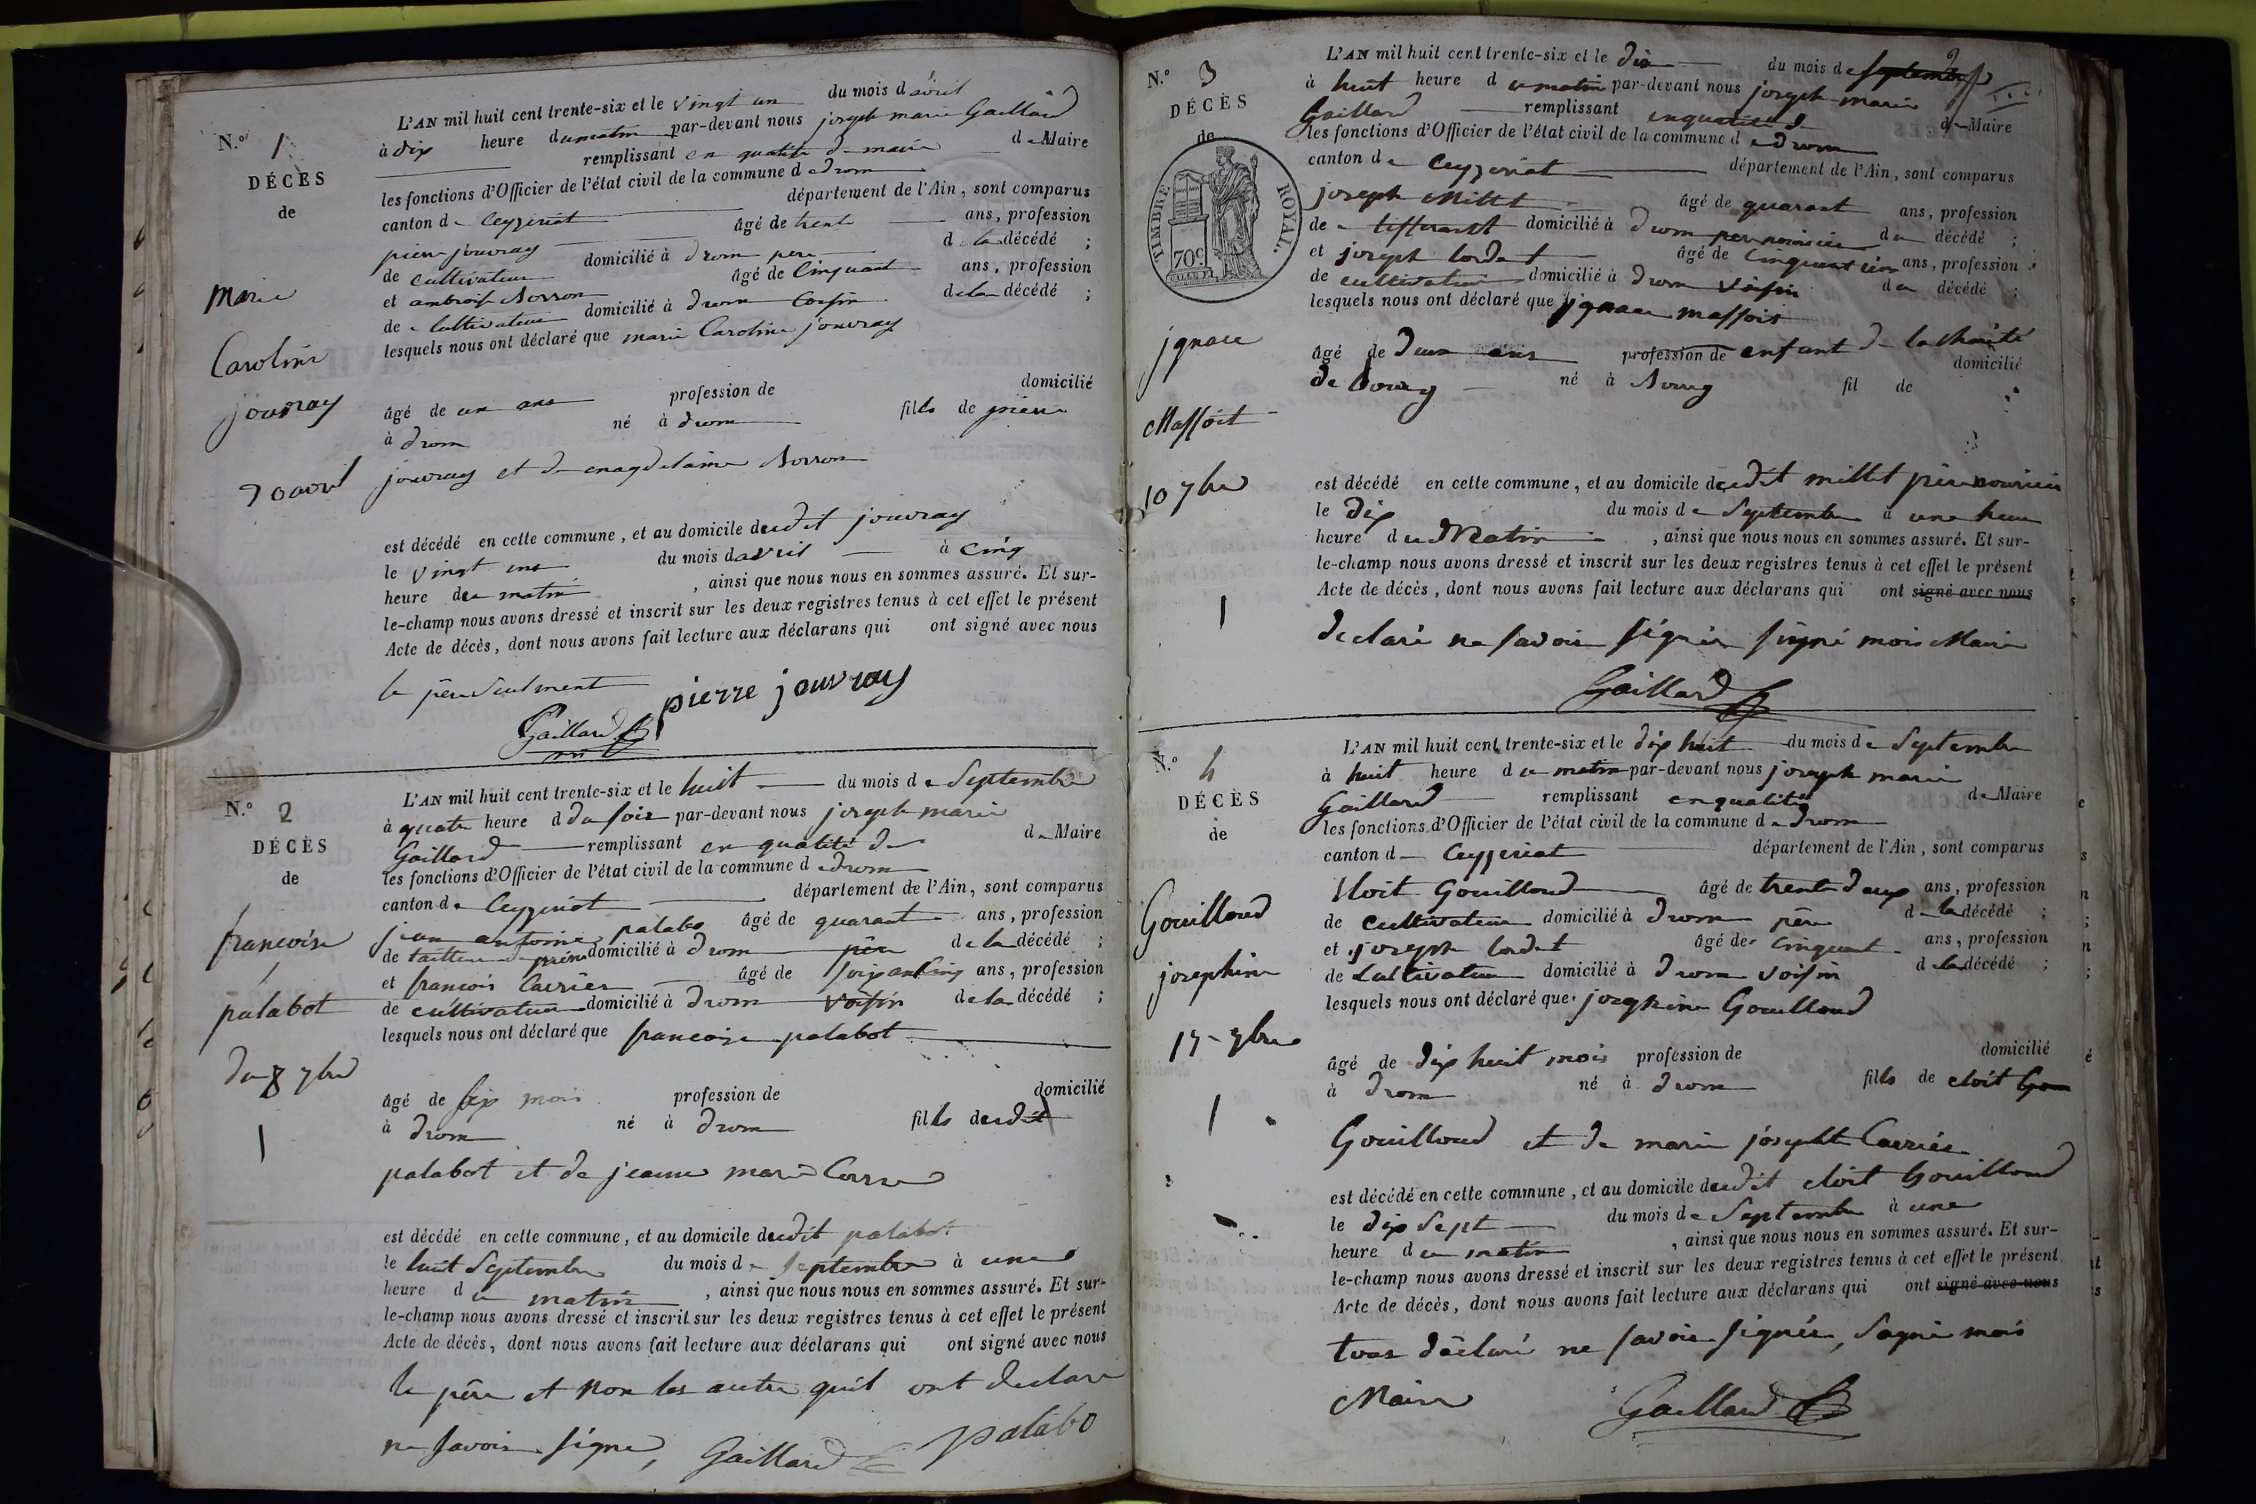 N.º 1
DÉCÈS
de
Marie
Caroline
jouvray
20 avril
L'AN mil huit cent trente-six et le vingt un du mois d avril
à dix heure du matin par-devant nous joseph marie Gaillard
remplissant en qualité de maire de Maire
les fonctions d'Officier de l'état civil de la commune d e drom
canton de Ceyzeriat département de l'Ain, sont comparus
pierre jouvray âgé de trente ans, profession
de cultivateur domicilié à drom pere de la décédé ;
et ambroise Borron âgé de Cinquant ans, profession
de Cultivateur domicilié à drom Cousin de la décédé ;
lesquels nous ont déclaré que marie Caroline jouvray
âgé de un ans profession de domicilié
à drom né à drom fille de pierre
jouvray et de magdelaine Borron
est décédé en cette commune, et au domicile dudit jouvray
le vingt un du mois d avril à cinq
heure du matin , ainsi que nous nous en sommes assuré. Et sur-
le-champ nous avons dressé et inscrit sur les deux registres tenus à cet effet le présent
Acte de décès, dont nous avons fait lecture aux déclarans qui ont signé avec nous
le père Seulment
Gaillard pierre jouvray
N.º 2
DÉCÈS
de
francoise
palabot
du 8 7bre
1
L'AN mil huit cent trente-six et le huit du mois de Septembre
à quatre heure d du soir par-devant nous joseph marie
Gaillard remplissant en qualité de de Maire
les fonctions d'Officier de l'état civil de la commune d e drom
canton de Ceyzeriat département de l'Ain, sont comparus
jean antoine palabo âgé de quarant ans, profession
de tailleur de domicilié à drom père de la décédé ;
et francois Carrier âgé de ans, profession
de cultivateur domicilié à drom voisin de la décédé ;
lesquels nous ont déclaré que francoise palabot
âgé de six mois profession de domicilié
à drom né à drom fille dudit
palabot et de jeanne marie
est décédé en cette commune, et au domicile dudit palabot
le huit Septembre du mois de Septembre à une
heure du matin , ainsi que nous nous en sommes assuré. Et sur-
le-champ nous avons dressé et inscrit sur les deux registres tenus à cet effet le présent
Acte de décès, dont nous avons fait lecture aux déclarans qui ont signé avec nous
le père et non les autre quil ont declare
ne savoir signe, Gaillard palabo
N.º 3
DÉCÈS
de
TIMBRE ROYAL
70 c
jgnace
Massoit
10 7bre
1
L'AN mil huit cent trente-six et le dix du mois de Septembre
à huit heure du matin par-devant nous joseph marie
Gaillard remplissant enqualité d de Maire
les fonctions d'Officier de l'état civil de la commune d e drom
canton de Ceyzeriat département de l'Ain, sont comparus
joseph Millet âgé de quarant ans, profession
de tisserant domicilié à drom du décédé ;
et joseph Cordet âgé de Cinquant ans, profession
de cultivateur domicilié à drom voisin du décédé ;
lesquels nous ont déclaré que jgnace massoit
âgé de deux ans profession de enfant de la charité
de bourg né à Bourg fil de domicilié
est décédé en cette commune, et au domicile dudit millet père nouricier
le dix du mois de Septembre à une heure
heure du Matin , ainsi que nous nous en sommes assuré. Et sur-
le-champ nous avons dressé et inscrit sur les deux registres tenus à cet effet le présent
Acte de décès, dont nous avons fait lecture aux déclarans qui ont signé avec nous
declaré ne savoir signer signé mois Maire
Gaillard
N.º 4
DÉCÈS
de
Gouilloud
josephine
17 7bre
1
L'AN mil huit cent trente-six et le dix huit du mois de Septembre
à huit heure du matin par-devant nous joseph marie
Gaillard remplissant enqualité de Maire
les fonctions d'Officier de l'état civil de la commune de drom
canton de Ceyzeriat département de l'Ain, sont comparus
Gouilloud âgé de trente deux ans, profession
de cultivateur domicilié à drom père de la décédé ;
et joseph Cordet âgé de Cinquant ans, profession
de Cultivateur domicilié à drom voisin de la décédé ;
lesquels nous ont déclaré que josephine Gouilloud
âgé de dix huit mois profession de domicilié
à drom né à drom fille de cloit Gou
Gouilloud et de marie josephte Carrier
est décédé en cette commune, et au domicile dudit cloit Gouilloud
le dix Sept du mois de Septembre à une
heure du matin , ainsi que nous nous en sommes assuré. Et sur-
le-champ nous avons dressé et inscrit sur les deux registres tenus à cet effet le présent
Acte de décès, dont nous avons fait lecture aux déclarans qui ont signé avec nous
tous déclaré ne savoir signer, Signé mois
Maire Gaillard